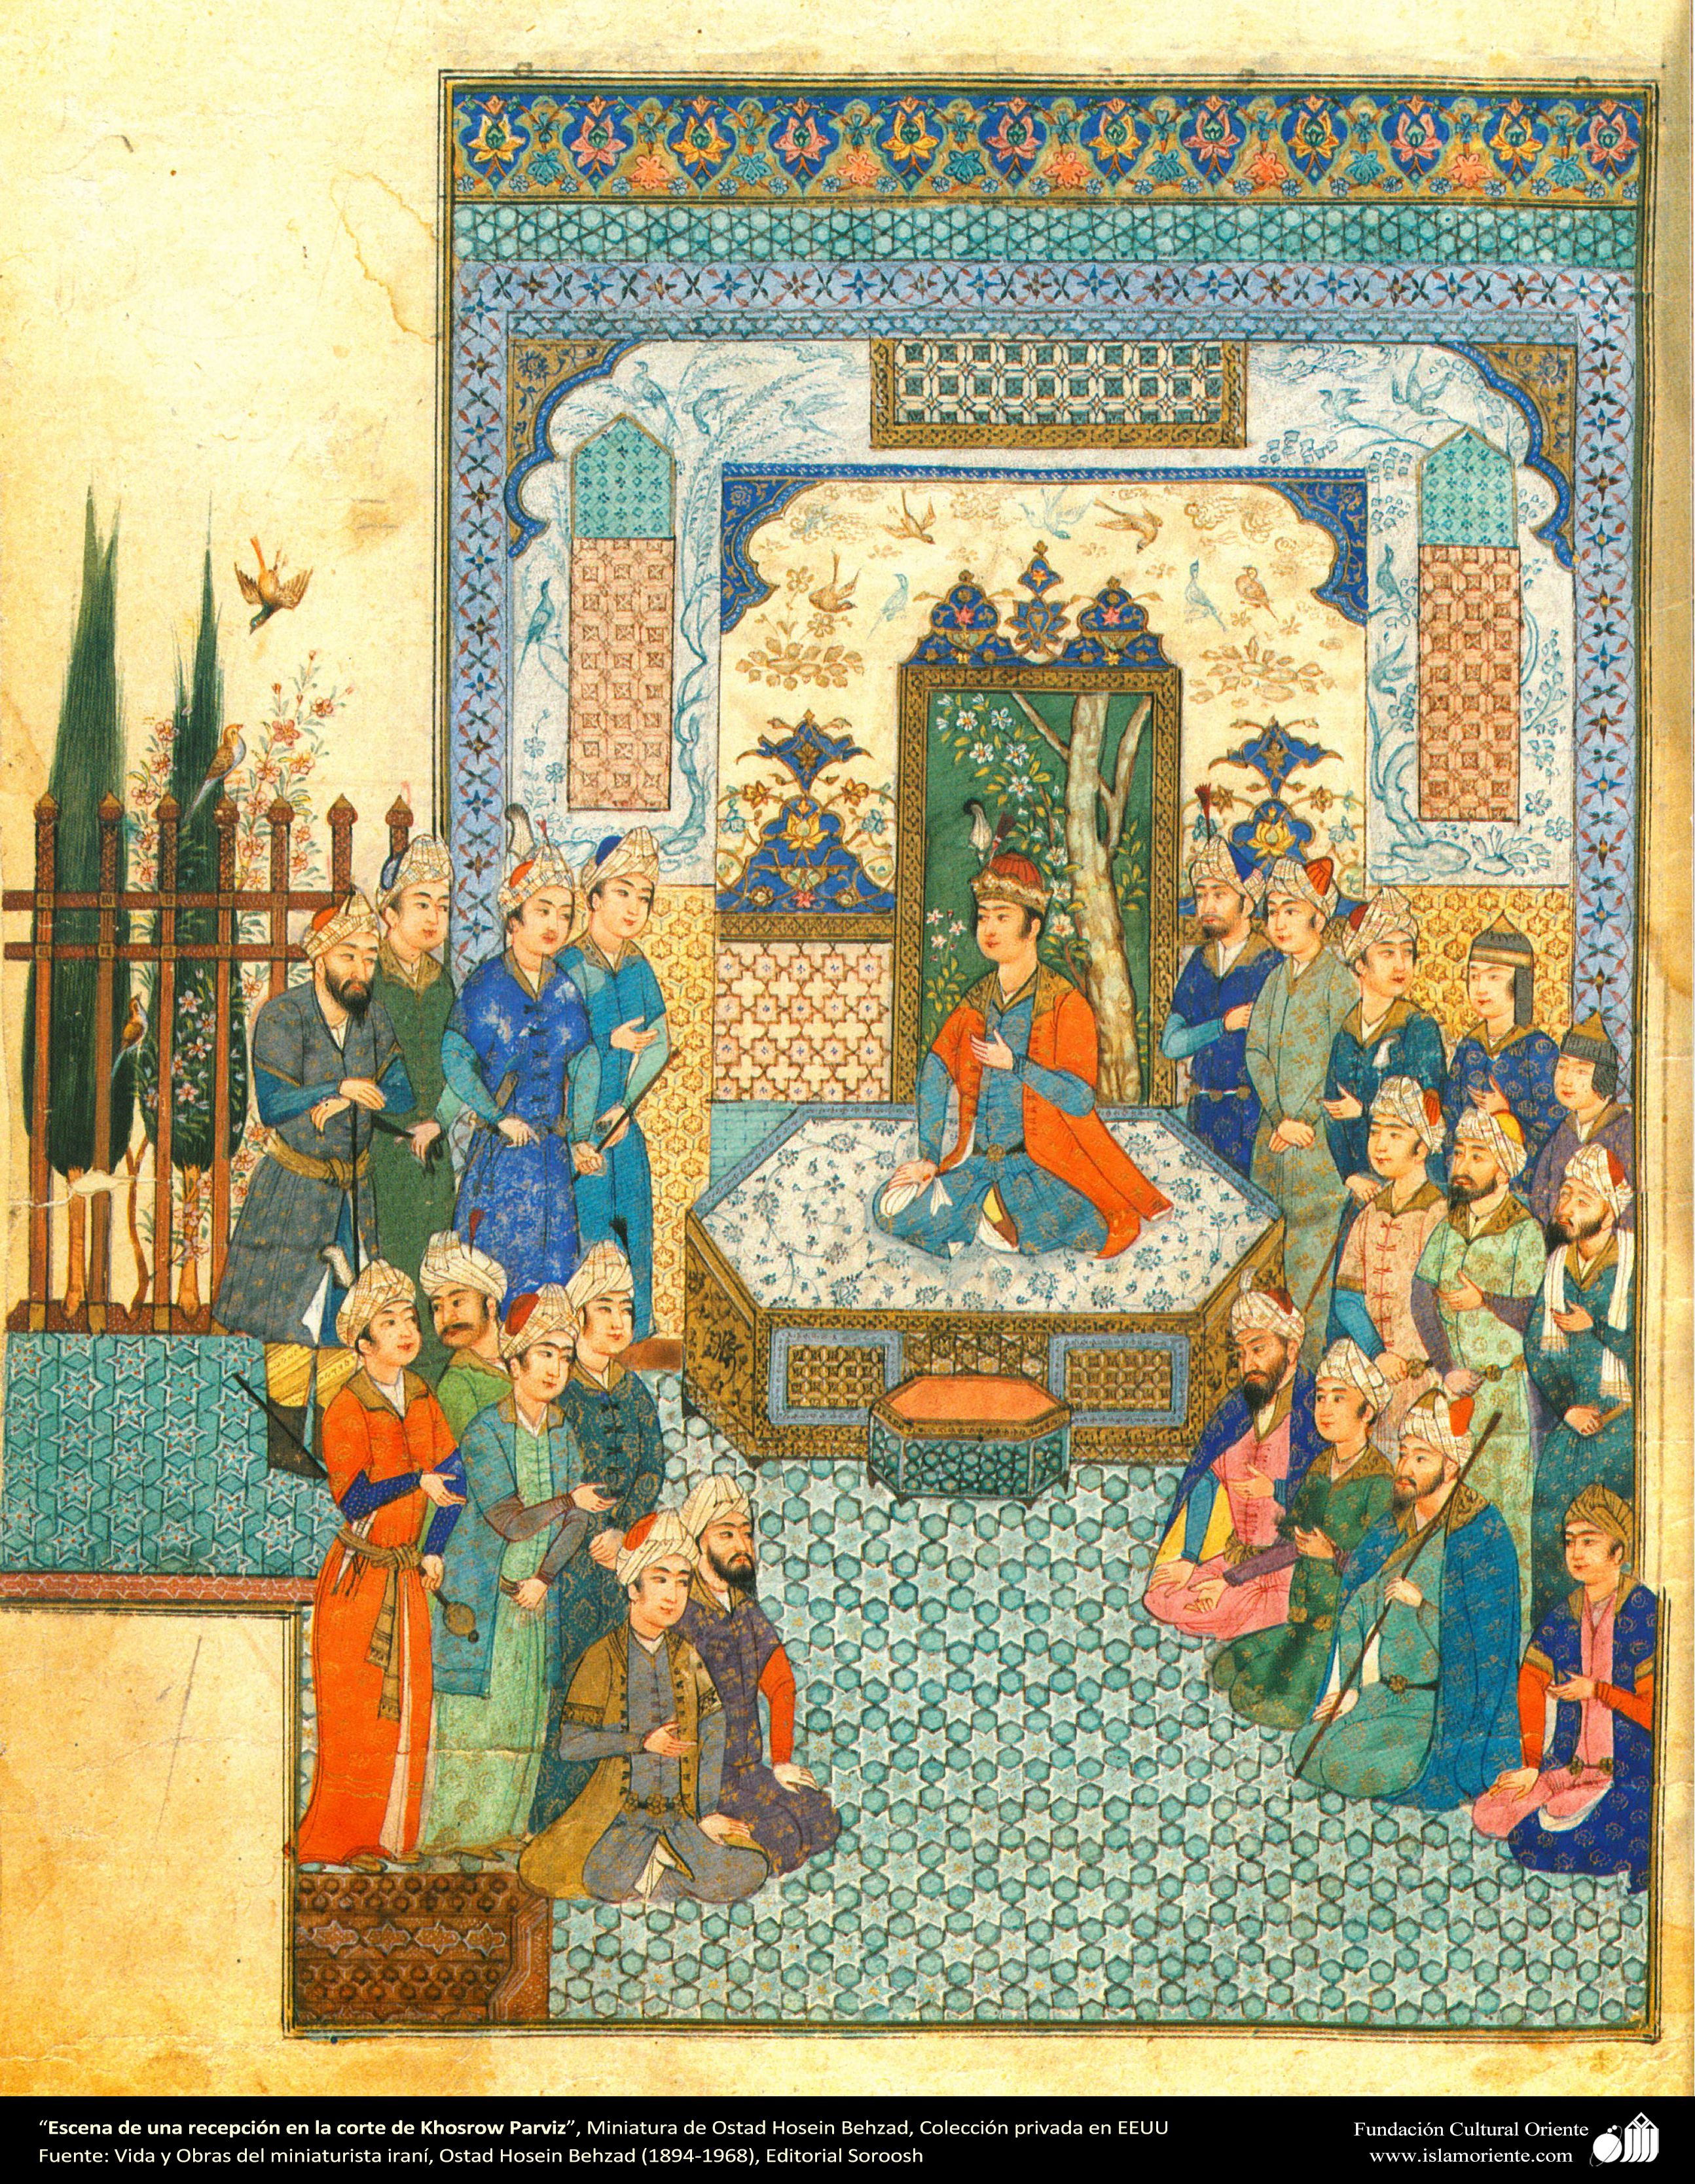 “Escena de una recepción en la corte de Khosrow Parviz”, Miniatura de Ostad Hosein Behzad, Colección privada en EEUU
Fuente: Vida y Obras del miniaturista iraní, Ostad Hosein Behzad (1894-1968), Editorial Soroosh
Fundación Cultural Oriente
www.islamoriente.com